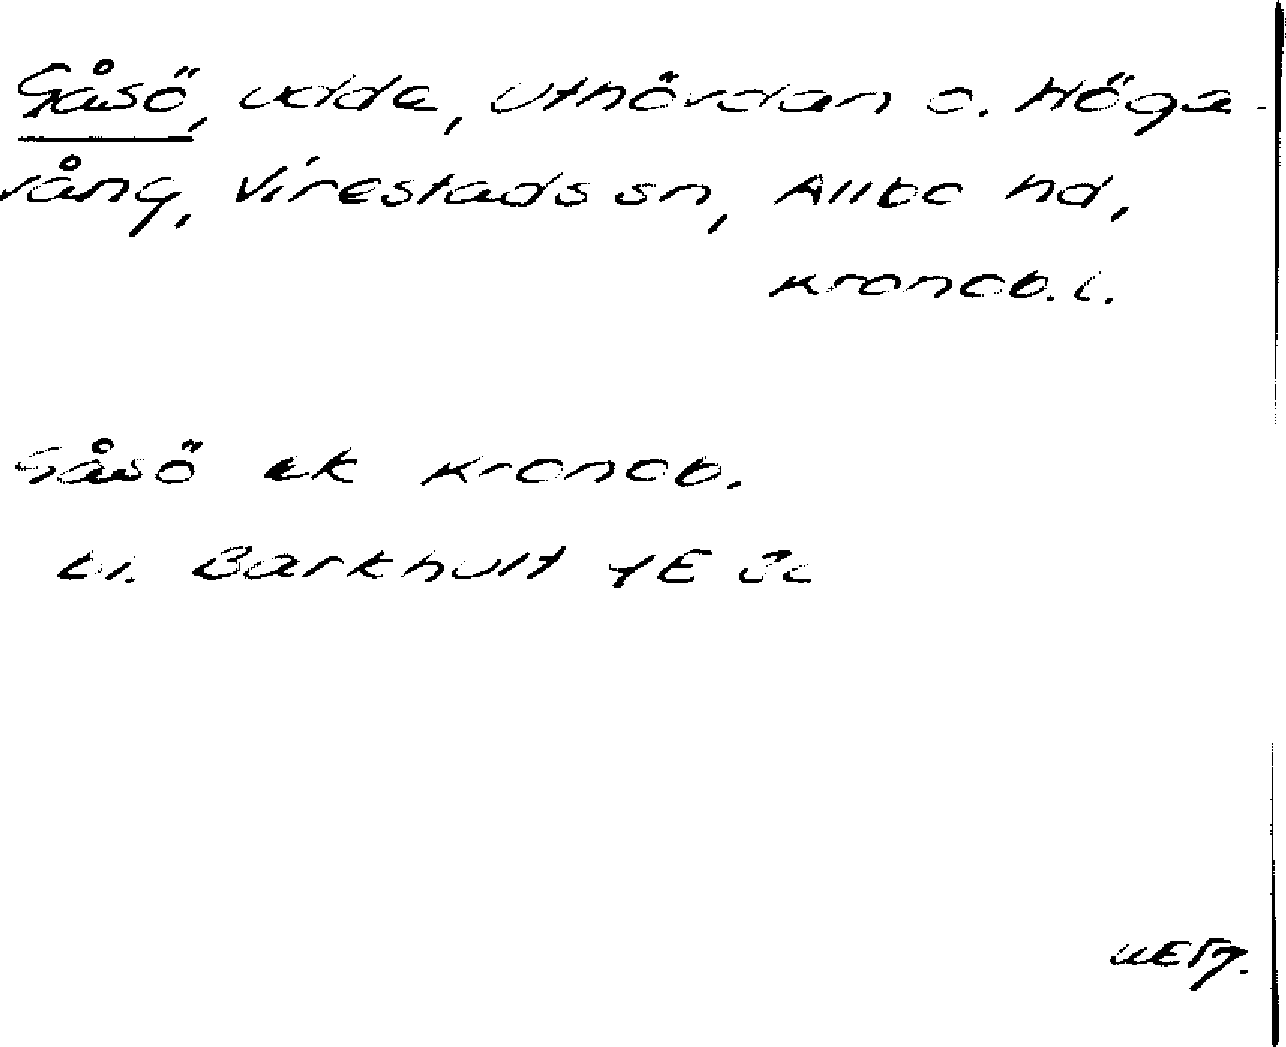 Gåsö, udde, Uthövdan o. Höga-
vång, Virestads sn, Allbo hd,
Kronob. l.
Gåsö ek Kronob.
bl. Barkhult 4E 3c